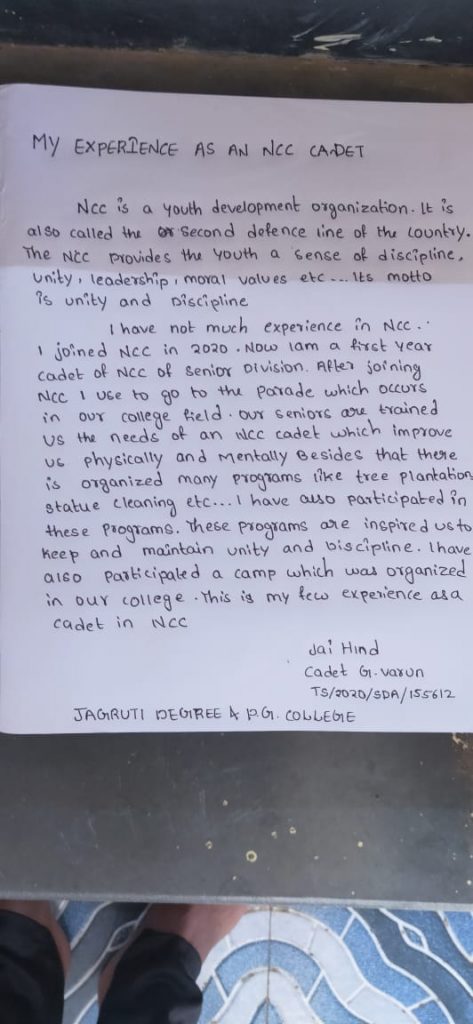 MY EXPERIENCE AS AN NCC CADET
NCC is a youth development organization. It is
also called the second defence line of the country.
The NCC provides the youth a sense of discipline,
unity, leadership, moral values etc... Its motto
is unity and Discipline
I have not much experience in NCC..
I joined NCC in 2020. Now Iam a first year
cadet of NCC of Senior Division. After joining
NCC I use to go to the Parade which occurs
in our college field. our seniors are trained
us the needs of an NCC cadet which improve
us physically and Mentally Besides that there
is organized many programs like tree plantation
statue cleaning etc... I have also participated in
these Programs. These programs are inspired us to
keep and maintain unity and Discipline. I have
also participated a camp which was organized
in our college. This is my few experience as a
cadet in NCC
Jai Hind
Cadet G. varun
TS/2020/SDA/155612
JAGRUTI DEGREE & P.G. COLLEGE